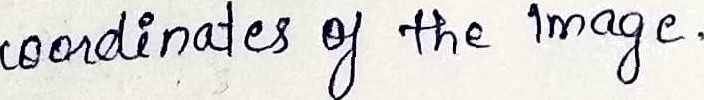 coordinates of the image.